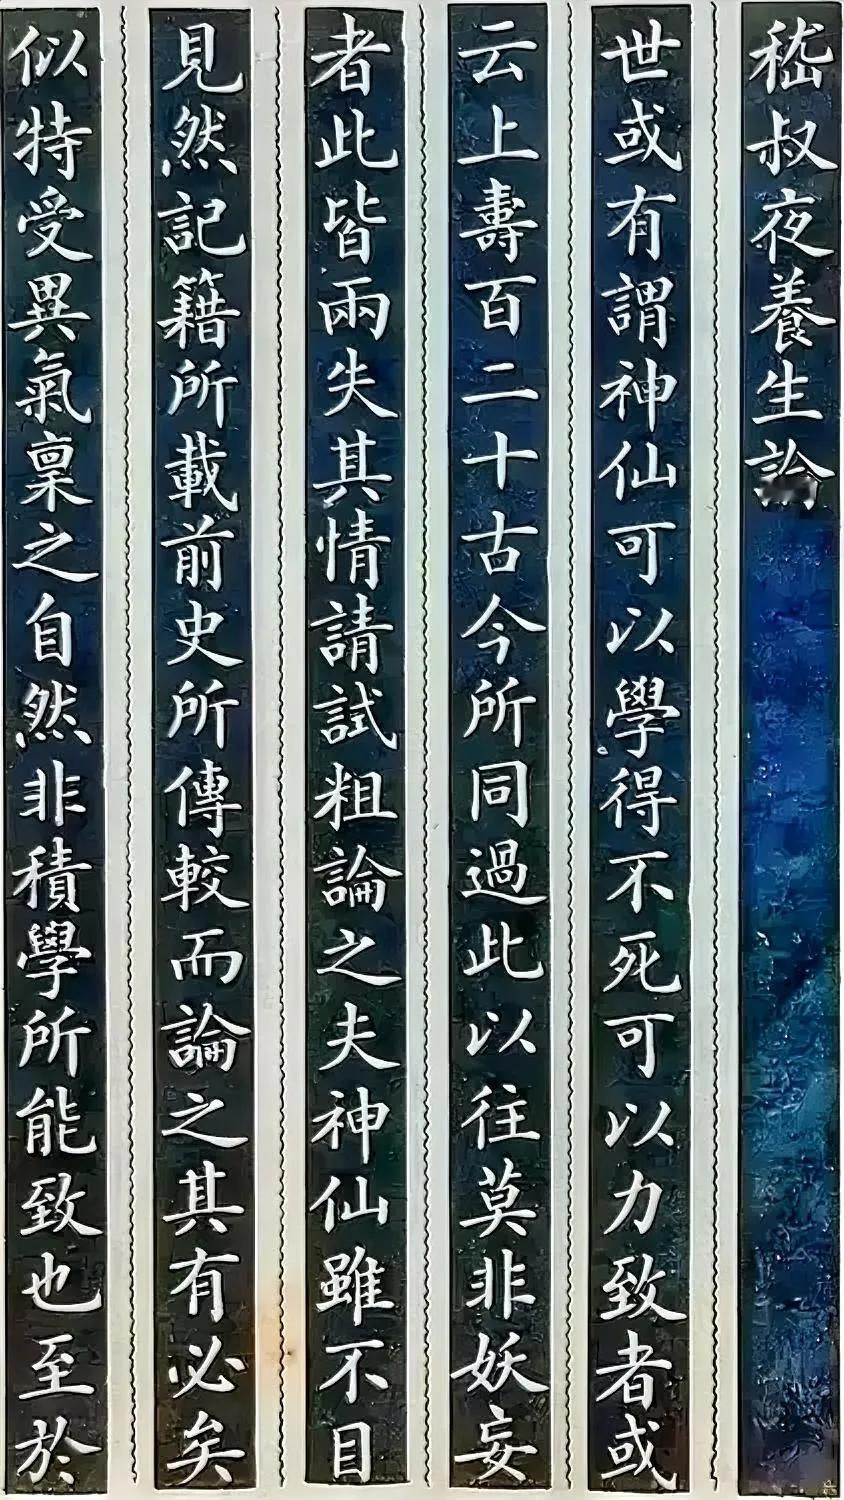 嵇叔夜養生論
世或有謂神仙可以學得不死可以力致者或
云上壽百二十古今所同過此以往莫非妖妄
者此皆兩失其情請試粗論之夫神仙雖不目
見然記籍所載前史所傳較而論之其有必矣
似特受異氣稟之自然非積學所能致也至於